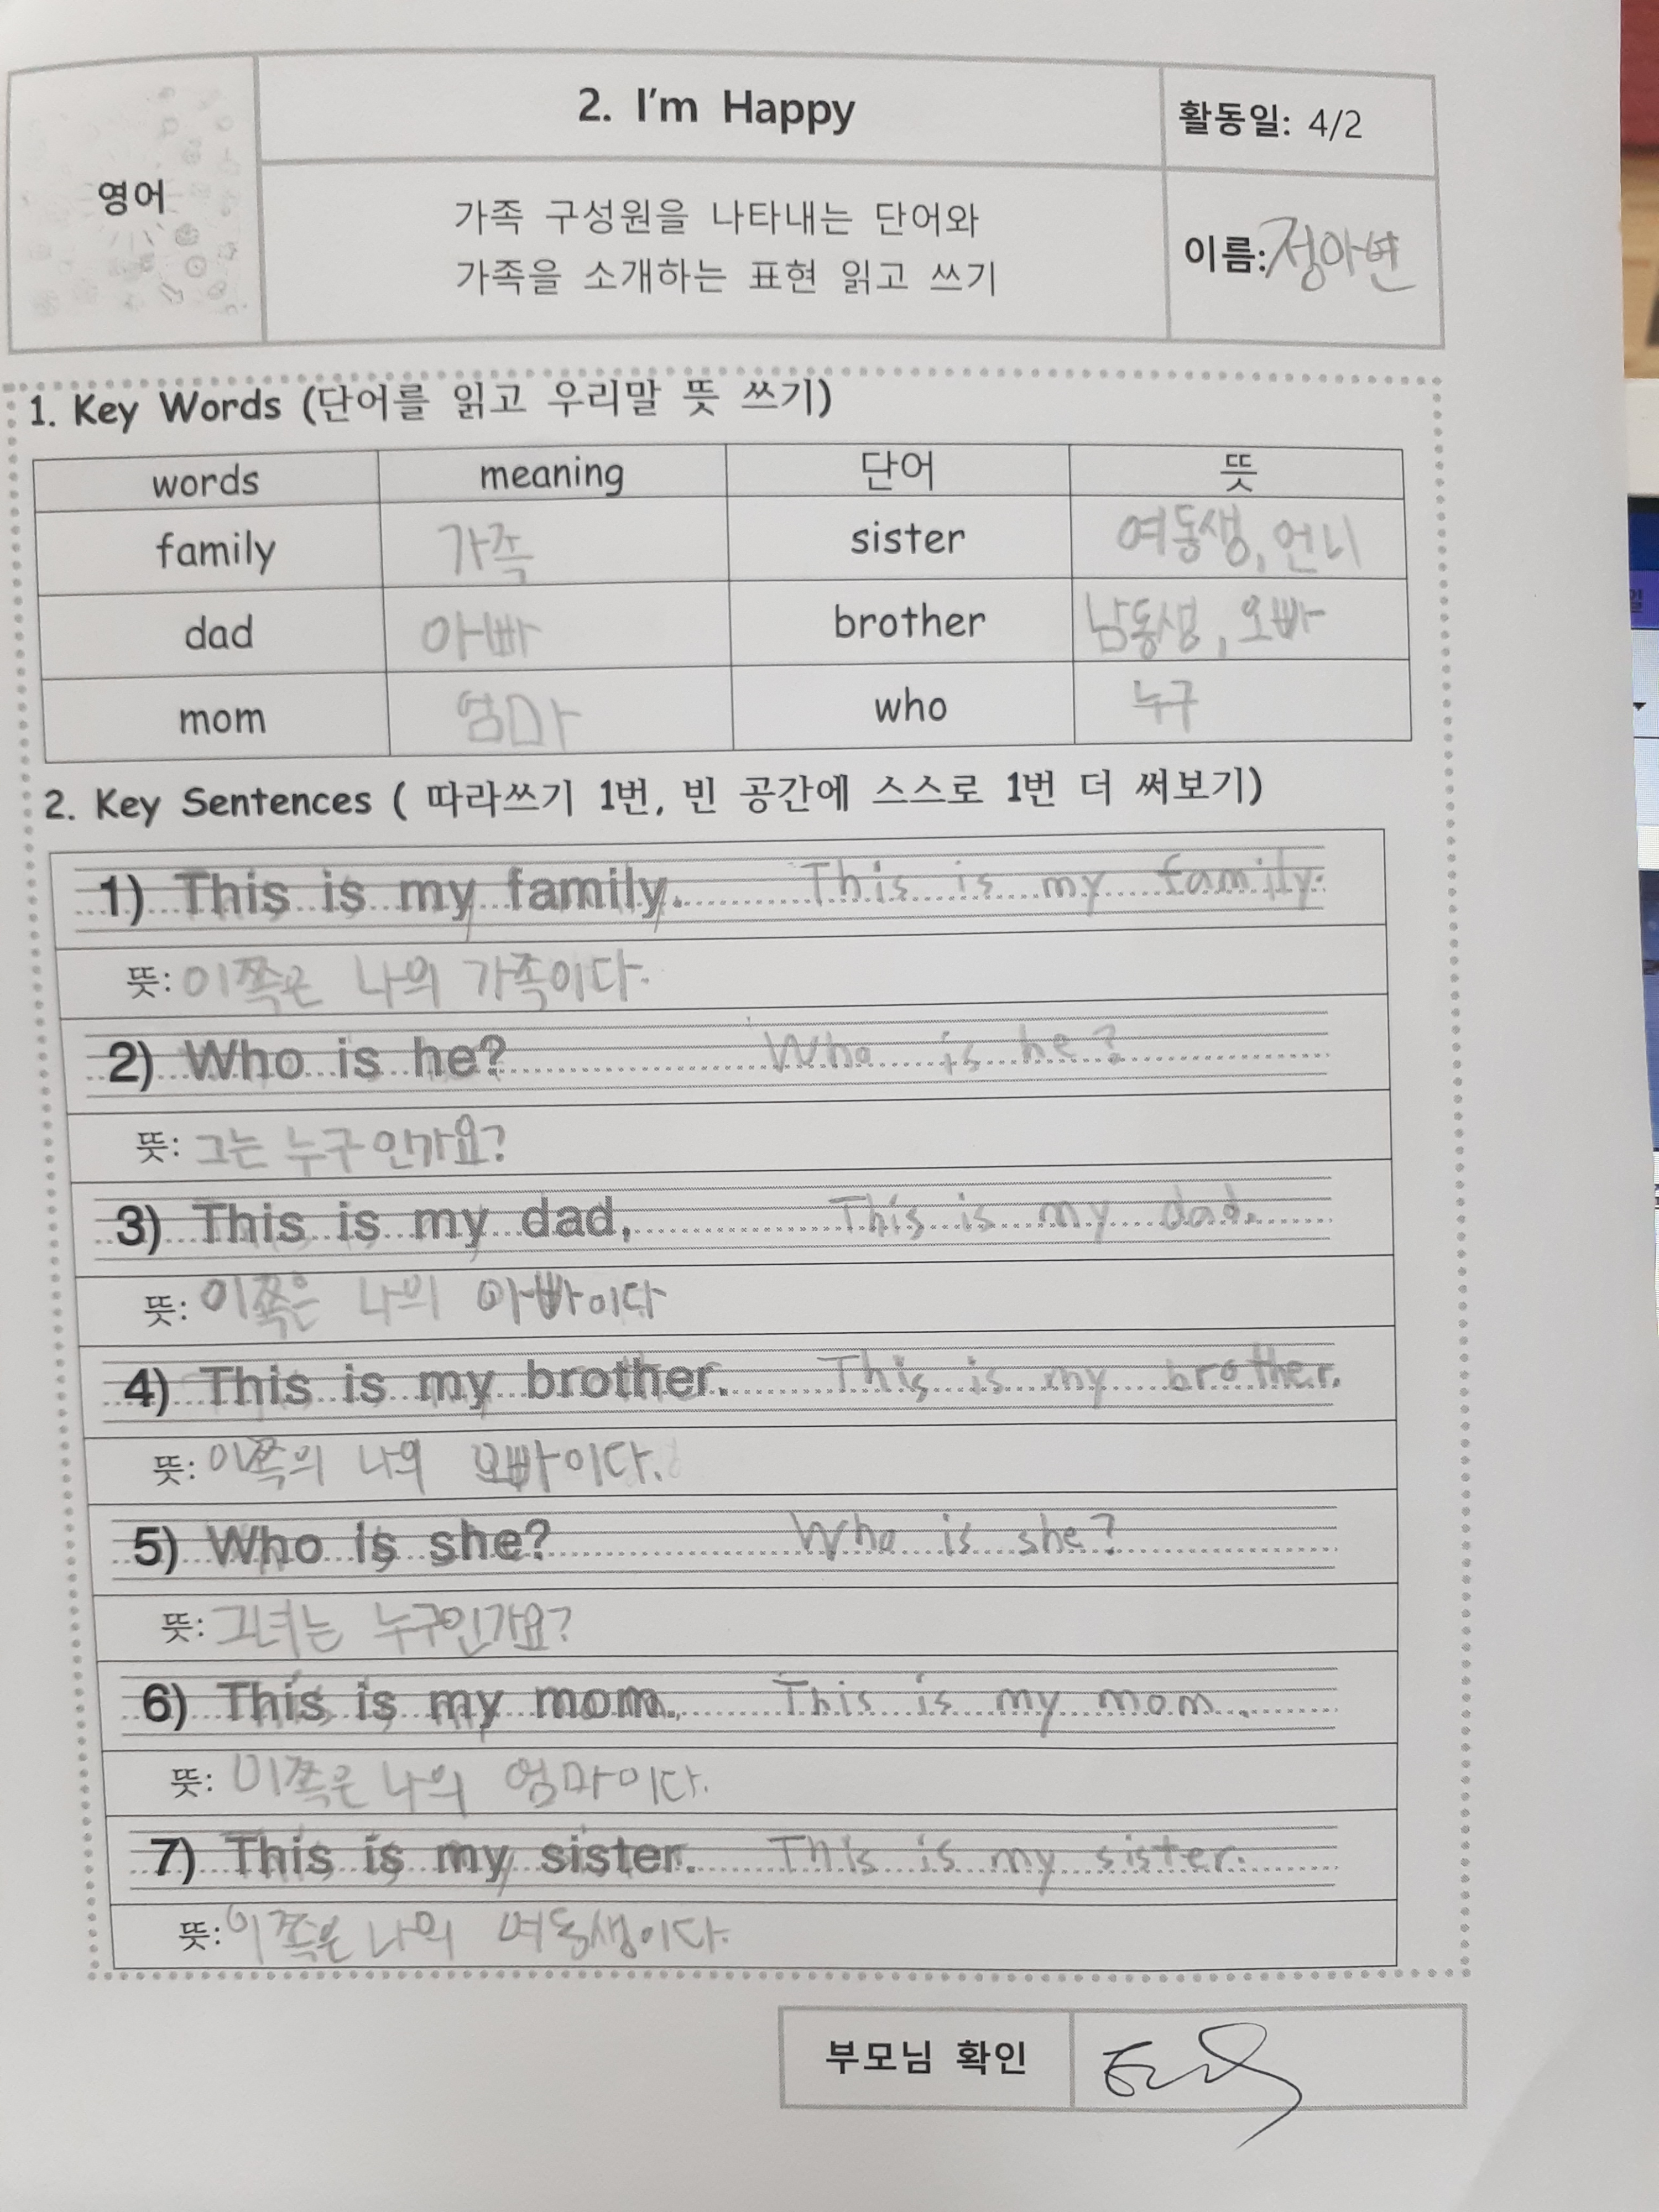 2. I'm Happy
활동일: 4/2
영어
가족 구성원을 나타내는 단어와
가족을 소개하는 표현 읽고 쓰기
이름: 정아변
1. Key Words (단어를 읽고 우리말 뜻 쓰기)
words meaning 단어 뜻
family 가족 sister 여동생, 언니
dad 아빠 brother 남동생, 오빠
mom 엄마 who 누구
2. Key Sentences ( 따라쓰기 1번, 빈 공간에 스스로 1번 더 써보기)
1) This is my family. This is my family.
뜻: 이쪽은 나의 가족이다.
2) Who is he? Who is he?
뜻: 그는 누구인가요?
3) This is my dad. This is my dad.
뜻: 이쪽은 나의 아빠이다
4) This is my brother. This is my brother.
뜻: 이쪽의 나의 오빠이다.
5) Who is she? Who is she?
뜻: 그녀는 누구인가요?
6) This is my mom. This is my mom.
뜻: 이쪽은 나의 엄마이다.
7) This is my sister. This is my sister.
뜻: 이쪽은 나의 여동생이다.
부모님 확인